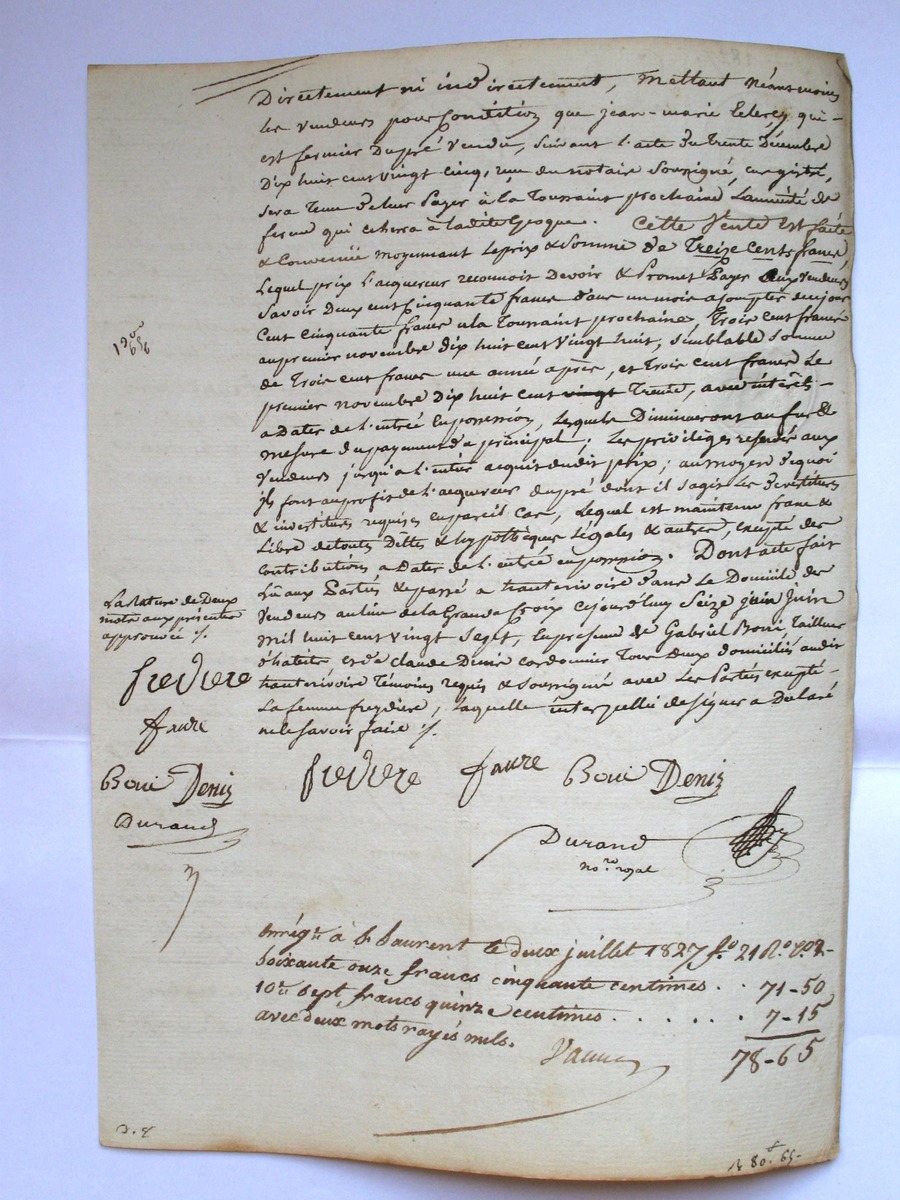 Directement ni indirectement, Mettant Néansmoins
les vendeurs pour Condition que jean-marie leclerc qui
est fermier du pré vendu, suivant l'acte du trente Décembre
Dix huit cent vingt cinq, reçu du notaire soussigné, enregistré,
sera tenu de leur Payer à la Toussaint prochaine L'année de
ferme qui echerra à ladite Epoque. Cette Vente Est faite
& Convenüe moyennant Le prix & Somme de Treize Cents francs,
Lequel prix l'acquereur reconnoit Devoir & Promet Payer aux Vendeurs
Savoir Deux cent Cinquante francs dans un mois à Compter de ce jour
Cent cinquante francs a la Toussaint prochaine Trois Cent francs
au premier novembre dix huit cent Vingt huit, semblable Somme
de Trois Cent francs une année après, et Trois cent francs Le
premier novembre Dix huit cent vingt Trente, avec intérêts
a Dater de l'entrée En possession, Lesquels Diminueront au fur &
mesure du payement du principal; Les privilèges reservés aux
Vendeurs jusqu'a l'entier acquit dudit prix; au moyen de quoi
ils font au profit de l'acquereur du pré dont il s'agit Les devestitures
& investitures requises en pareil Cas, Lequel est maintenu franc &
Libre de toutes Dettes & hypothèques Légales & autres, excepté des
Contributions a Dater de l'entrée en possession. Dont acte fait
Lû aux Parties & passé a hauterivoire dans Le Domicile des
Vendeurs au lieu de la Grande Croix Cejourd'huy Seize juin Juin
Mil huit cent vingt Sept, en presence de Gabriel Boni Tailleur
d'habits et de Claude Denis Cordonnier Tous Deux domiciliés audit
hauterivoire Témoins requis & Soussignés avec Les Parties excepté
La femme freydiere, Laquelle interpellée de signer a Déclaré
ne le Savoir faire ./.
La rature de Deux
mots aux présentes
approuvée ./.
fredière
faure
Boni Denis
Durand
fredière faure Boni Denis
Durand
no.re royal
enrég.é à St Laurent le deux juillet 1827 f.o 21 R.o V.o 2
soixante onze francs cinquante centimes . . 71-50
10.e sept francs quinze centimes . . . . . . 7-15
avec deux mots rayés nuls. 78-65